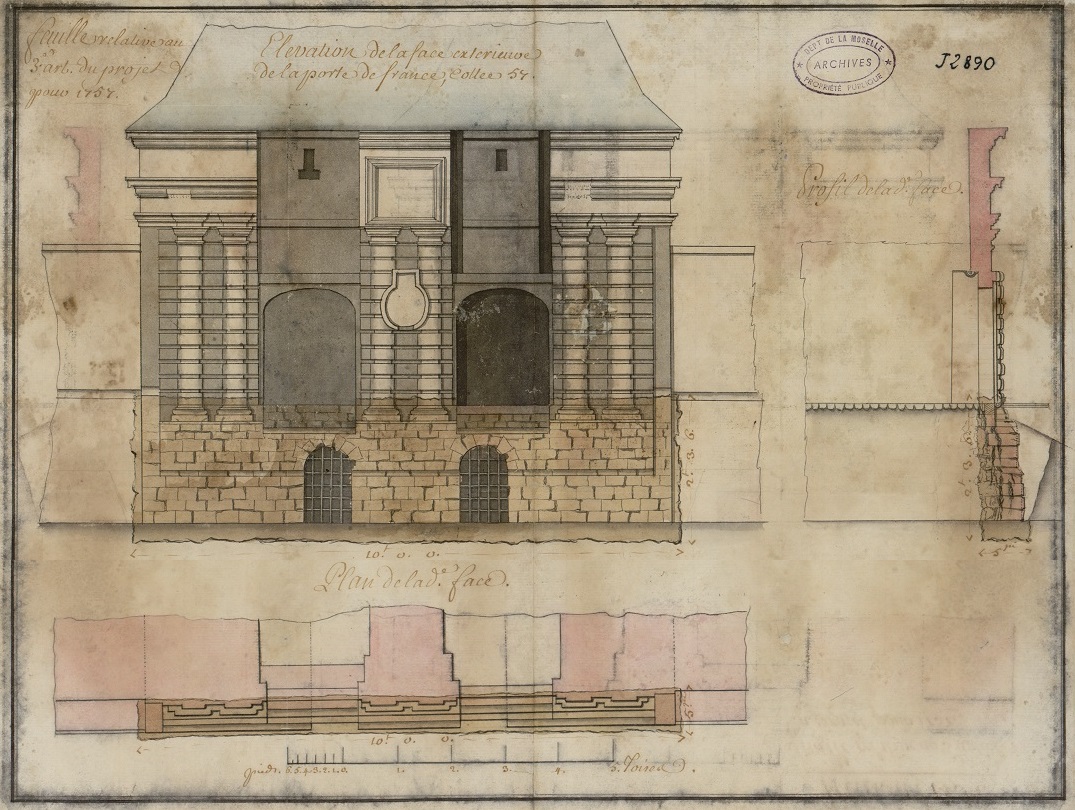 feuille relative au
3.e art. du projet
pour 1757.
Elevation de la face exterieure
de la porte de france, Cottee 57.
DEPT DE LA MOSELLE
ARCHIVES
PROPRIÉTÉ PUBLIQUE
J2890
Profil de lad.e face.
2.t 3. 6.
2.t 3. 6.
10.t 0. 0.
Plan de lad.e face.
10.t 0. 0.
pieds. 6.5.4.3.2.1.0. 1. 2. 3. 4. 5. Toises.